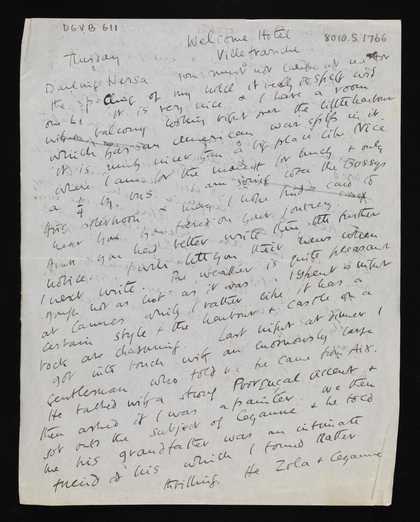 DGVB 611
8010.5.1766
Welcome Hotel
Villefranche
Thursday
Darling Nersa you must not
the spelling of my hotel it really is spelt with
one l. It is very nice & I have a room
with a balcony looking right over the little harbour
which has an American war ship in it.
It is much nicer than a big place like Nice
where I came for the market for lunch & only
a by bus. I am going over the Bussys
this afternoon & may I hope find a card to
hear how you fared on your journey
Ann you had better write them till further
notice. I will tell you their news when
I next write. The weather is quite pleasant
though not as hot as it was. I spent a night
at Cannes which I rather like it has a
certain style & the harbour & castle on a
rock are charming. Last night at dinner I
got into touch with an enormously large
gentleman who told me he came from Aix.
He talked with a strong Provencal accent &
then asked if I was a painter. We then
got onto the subject of Cezanne & he told
me his grandfather was an intimate
friend of his which I found rather
thrilling. He Zola & Cezanne